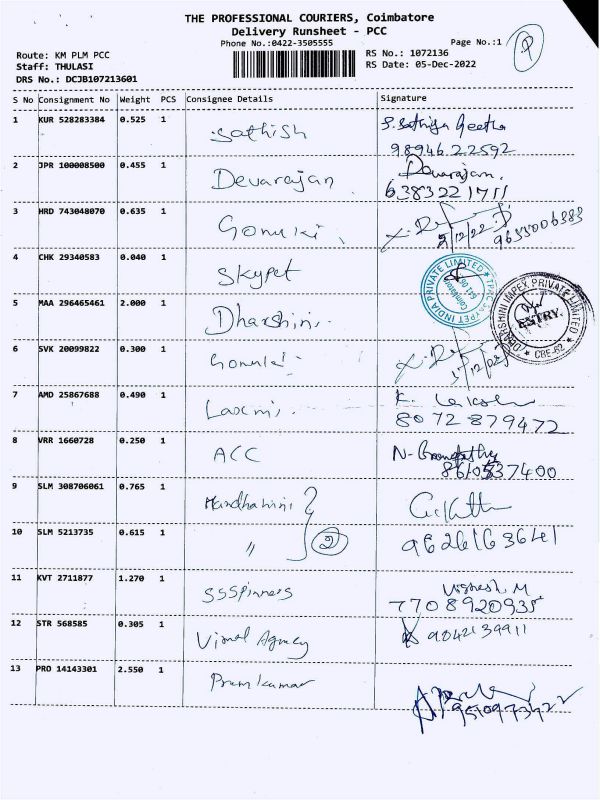 THE PROFESSIONAL COURIERS, Coimbatore
Delivery Runsheet - PCC
Phone No.:0422-3505555
Page No.:1
P
Route: KM PLM PCC
RS No.: 1072136
Staff: THULASI
RS Date: 05-Dec-2022
DRS No.: DCJB107213601
S No Consignment No Weight PCS Consignee Details Signature
1 KUR 528283384 0.525 1 Sathish S. Sathiya Geetha
9894622592
2 JPR 100008500 0.455 1 Devarajan Devarajan.
6383221711
3 HRD 743048070 0.635 1
9655006383
4 CHK 29340583 0.040 1 Skypet
INDIA PRIVATE LIMITED
Coimbatore
641
5 MAA 296465461 2.000 1 Dharshini.
DHARSHINI IMPEX PRIVATE LIMITED
ENTRY.
CBE-62
6 SVK 20099822 0.300 1
7 AMD 25867688 0.490 1 Laxmi. K.
8072-879472
8 VRR 1660728 0.250 1 ACC N-
8610537400
9 SLM 308706061 0.765 1
10 SLM 5213735 0.615 1 〃 2
9626163641
11 KVT 2711877 1.270 1 SSSpinners Vignesh. M
7708920935
12 STR 568585 0.305 1 Vimal Agency 9042139911
13 PRO 14143301 2.550 1 Premkumar